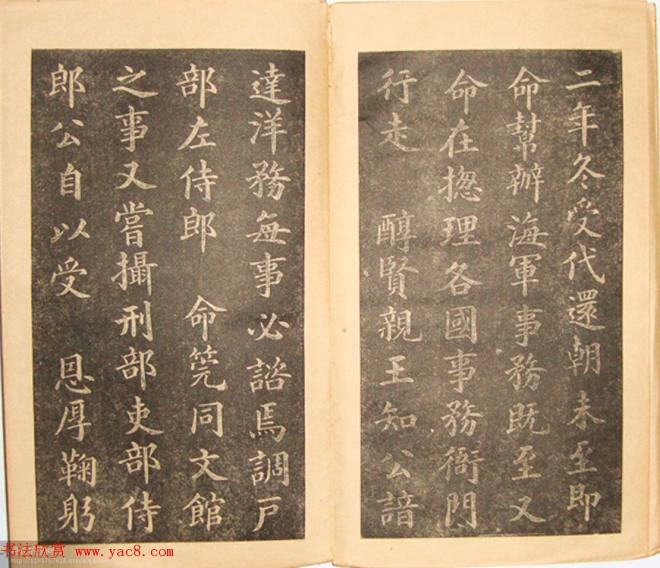 二年冬受代還朝未至即
命幫辦海軍事務既至又
命在揔理各國事務衙門
行走 醇賢親王知公諳
達洋務每事必諮焉調戶
部左侍郎 命筦同文館
之事又嘗攝刑部吏部侍
郎公自以受 恩厚鞠躬
书法欣赏 www.yac8.com